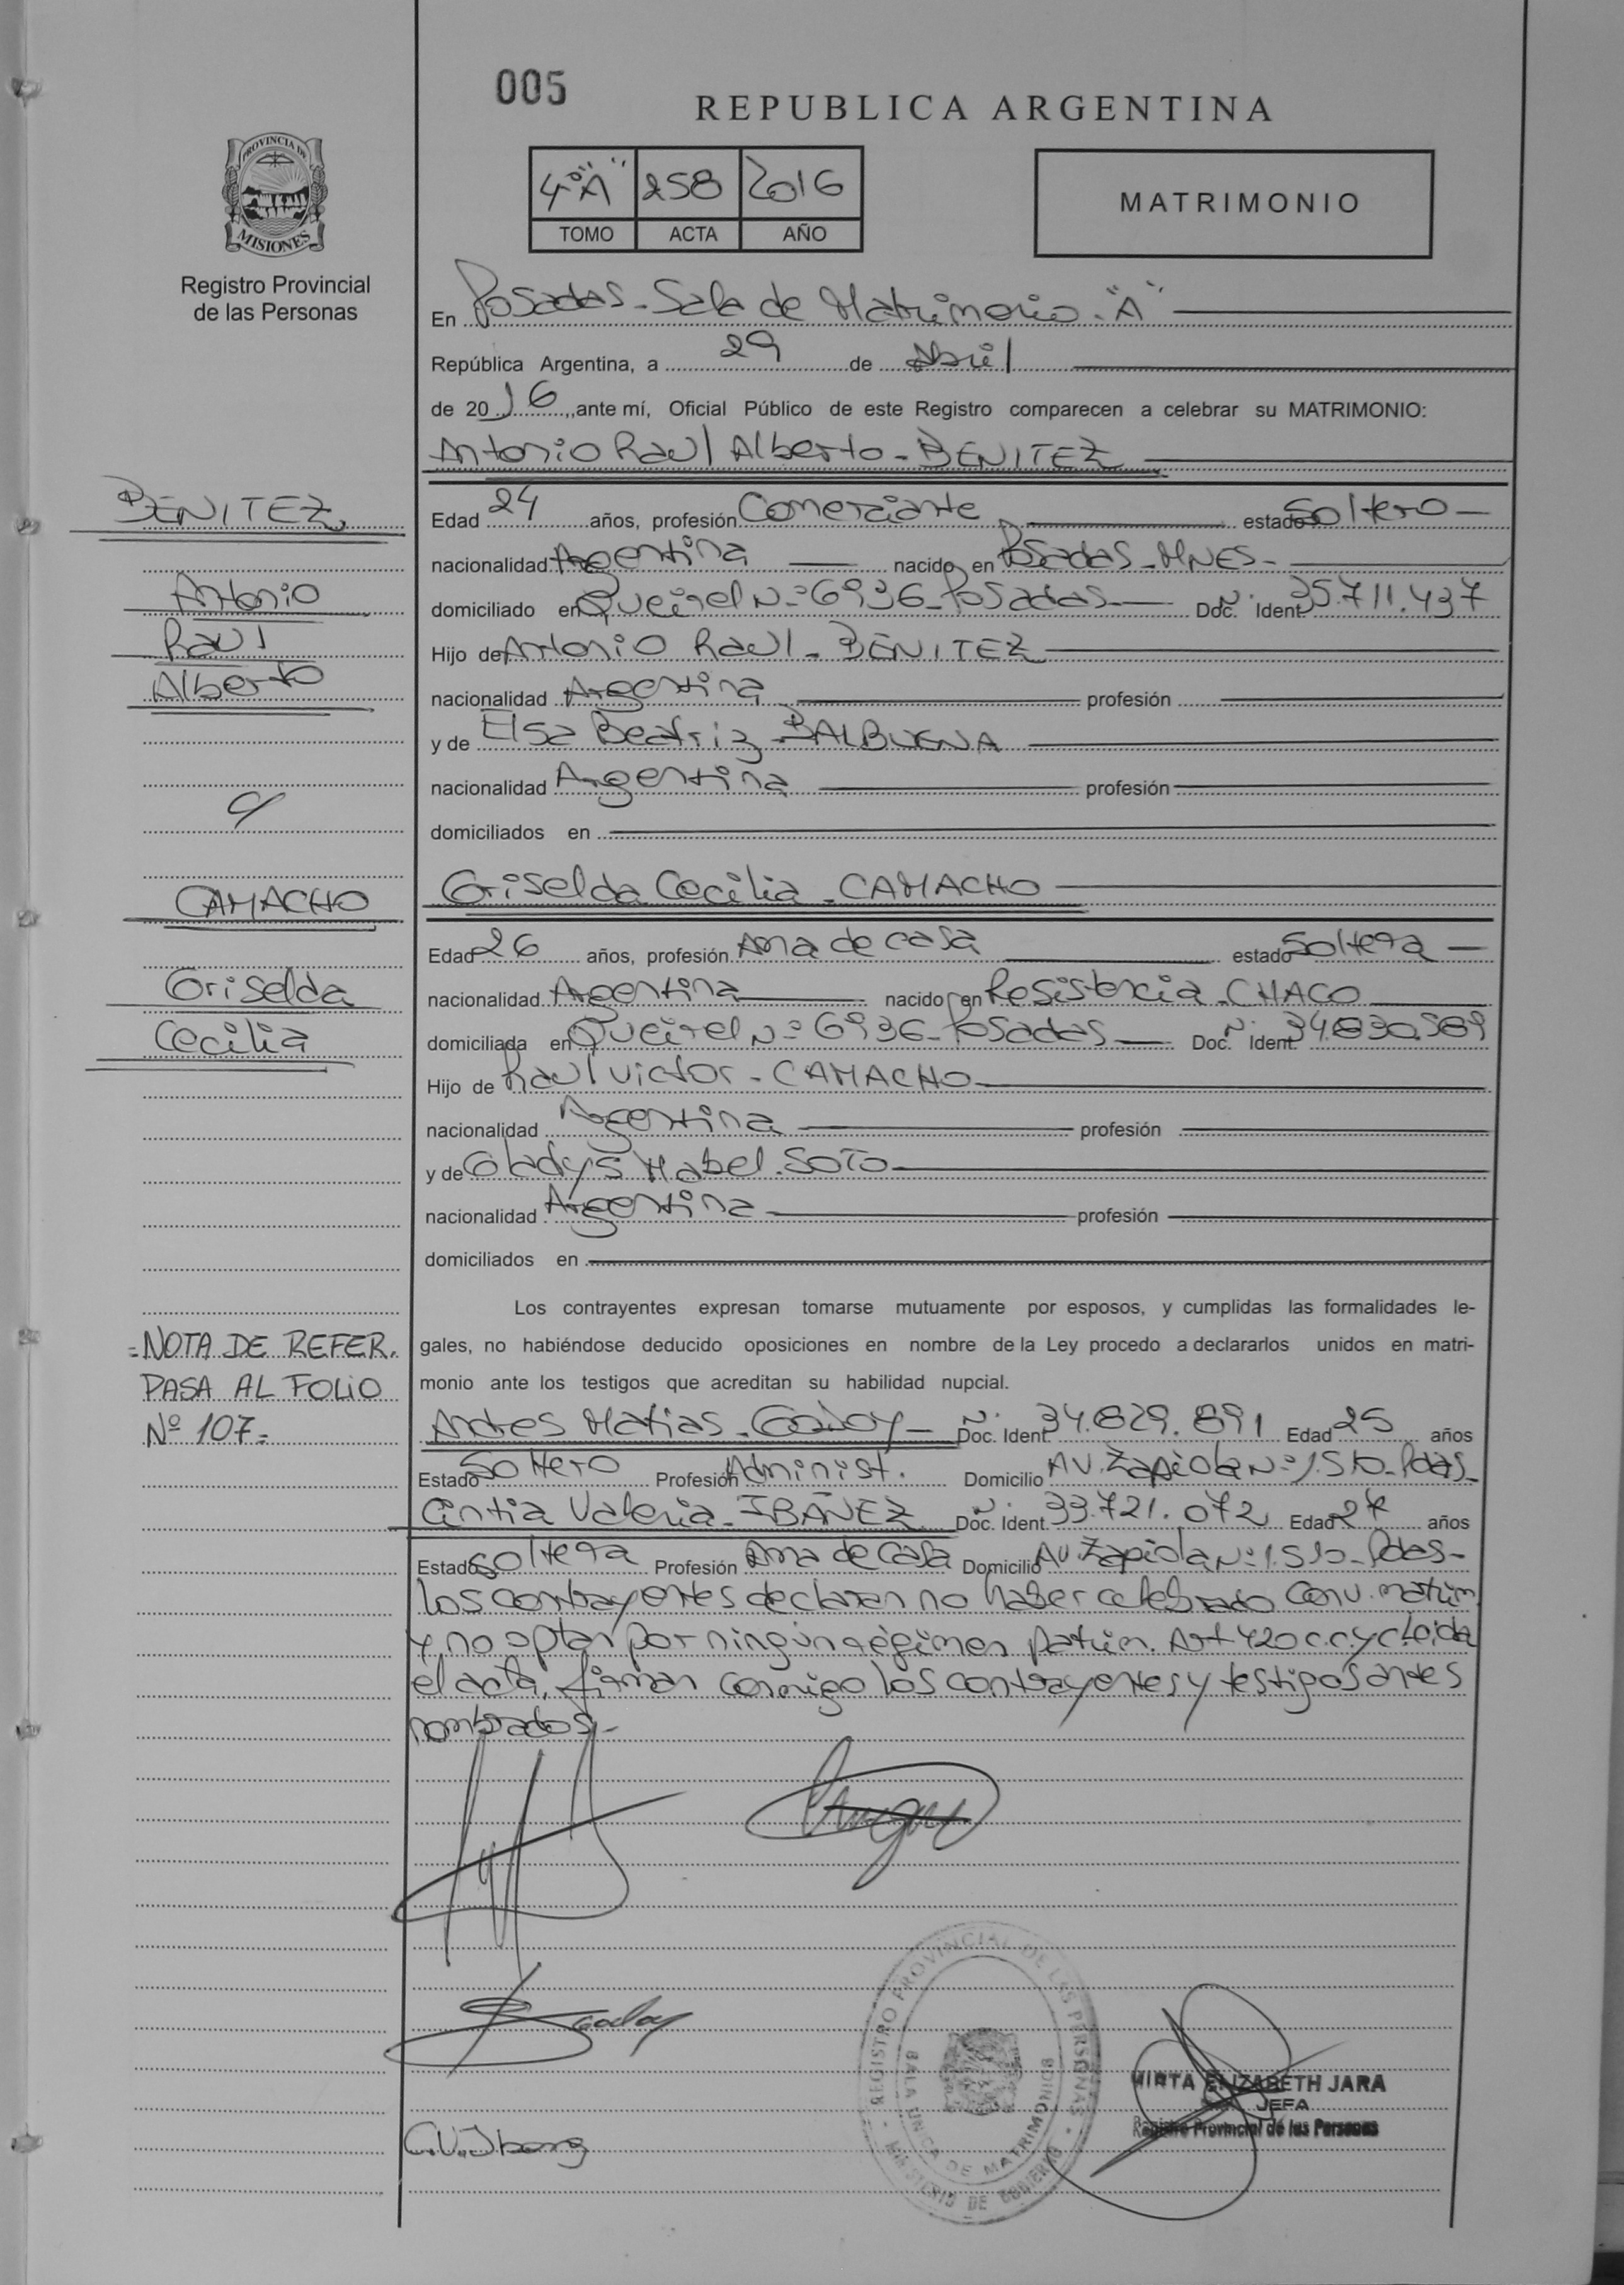 005
REPUBLICA ARGENTINA
4º "A" 258 2016
TOMO ACTA AÑO
MATRIMONIO
PROVINCIA DE
MISIONES
Registro Provincial
de las Personas
En Posadas - Sala de Matrimonio - "A"
República Argentina, a 29 de Abril
de 2016, ante mí, Oficial Público de este Registro comparecen a celebrar su MATRIMONIO:
Antonio Raul Alberto - BENITEZ
BENITEZ
Antonio
Raul
Alberto
c/
CAMACHO
Griselda
Cecilia
Edad 24 años, profesión Comerciante estado Soltero -
nacionalidad Argentina nacido en Posadas - MNES -
domiciliado en Queirel Nº 6936 - Posadas - Doc. Nº Ident. 35.711.437
Hijo de Antonio Raul - BENITEZ
nacionalidad Argentina profesión
y de Elsa Beatriz - BALBUENA
nacionalidad Argentina profesión
domiciliados en
Griselda Cecilia - CAMACHO
Edad 26 años, profesión Ama de casa estado Soltera -
nacionalidad Argentina nacido en Resistencia - CHACO
domiciliada en Queirel Nº 6936 - Posadas - Doc. Nº Ident. 34.830.589
Hijo de Raul Victor - CAMACHO
nacionalidad Argentina profesión
y de Gladys Mabel - SOTO
nacionalidad Argentina profesión
domiciliados en
Los contrayentes expresan tomarse mutuamente por esposos, y cumplidas las formalidades le-
gales, no habiéndose deducido oposiciones en nombre de la Ley procedo a declararlos unidos en matri-
monio ante los testigos que acreditan su habilidad nupcial.
= NOTA DE REFER.
PASA AL FOLIO
Nº 107 =
Andres Matias - Godoy - Doc. Nº Ident. 34.829.891 Edad 25 años
Estado Soltero Profesión Administ. Domicilio AV. Zapiola Nº 1.510 - Pdas -
Cintia Valeria - IBAÑEZ Doc. Nº Ident. 33.721.072 Edad 27 años
Estado Soltera Profesión Ama de Casa Domicilio AV. Zapiola Nº 1.510 - Pdas -
Los contrayentes declaran no haber celebrado Conv. matrim
y no optan por ningún régimen patrim. Art 420 c.c.y c. Leída
el acta, firman conmigo los contrayentes y testigos antes
nombrados -
Godoy
C.V. Ibanez
REGISTRO PROVINCIAL DE LAS PERSONAS
SALA UNICA DE MATRIMONIOS
MINISTERIO DE GOBIERNO
MIRTA ELIZABETH JARA
JEFA
Registro Provincial de las Personas